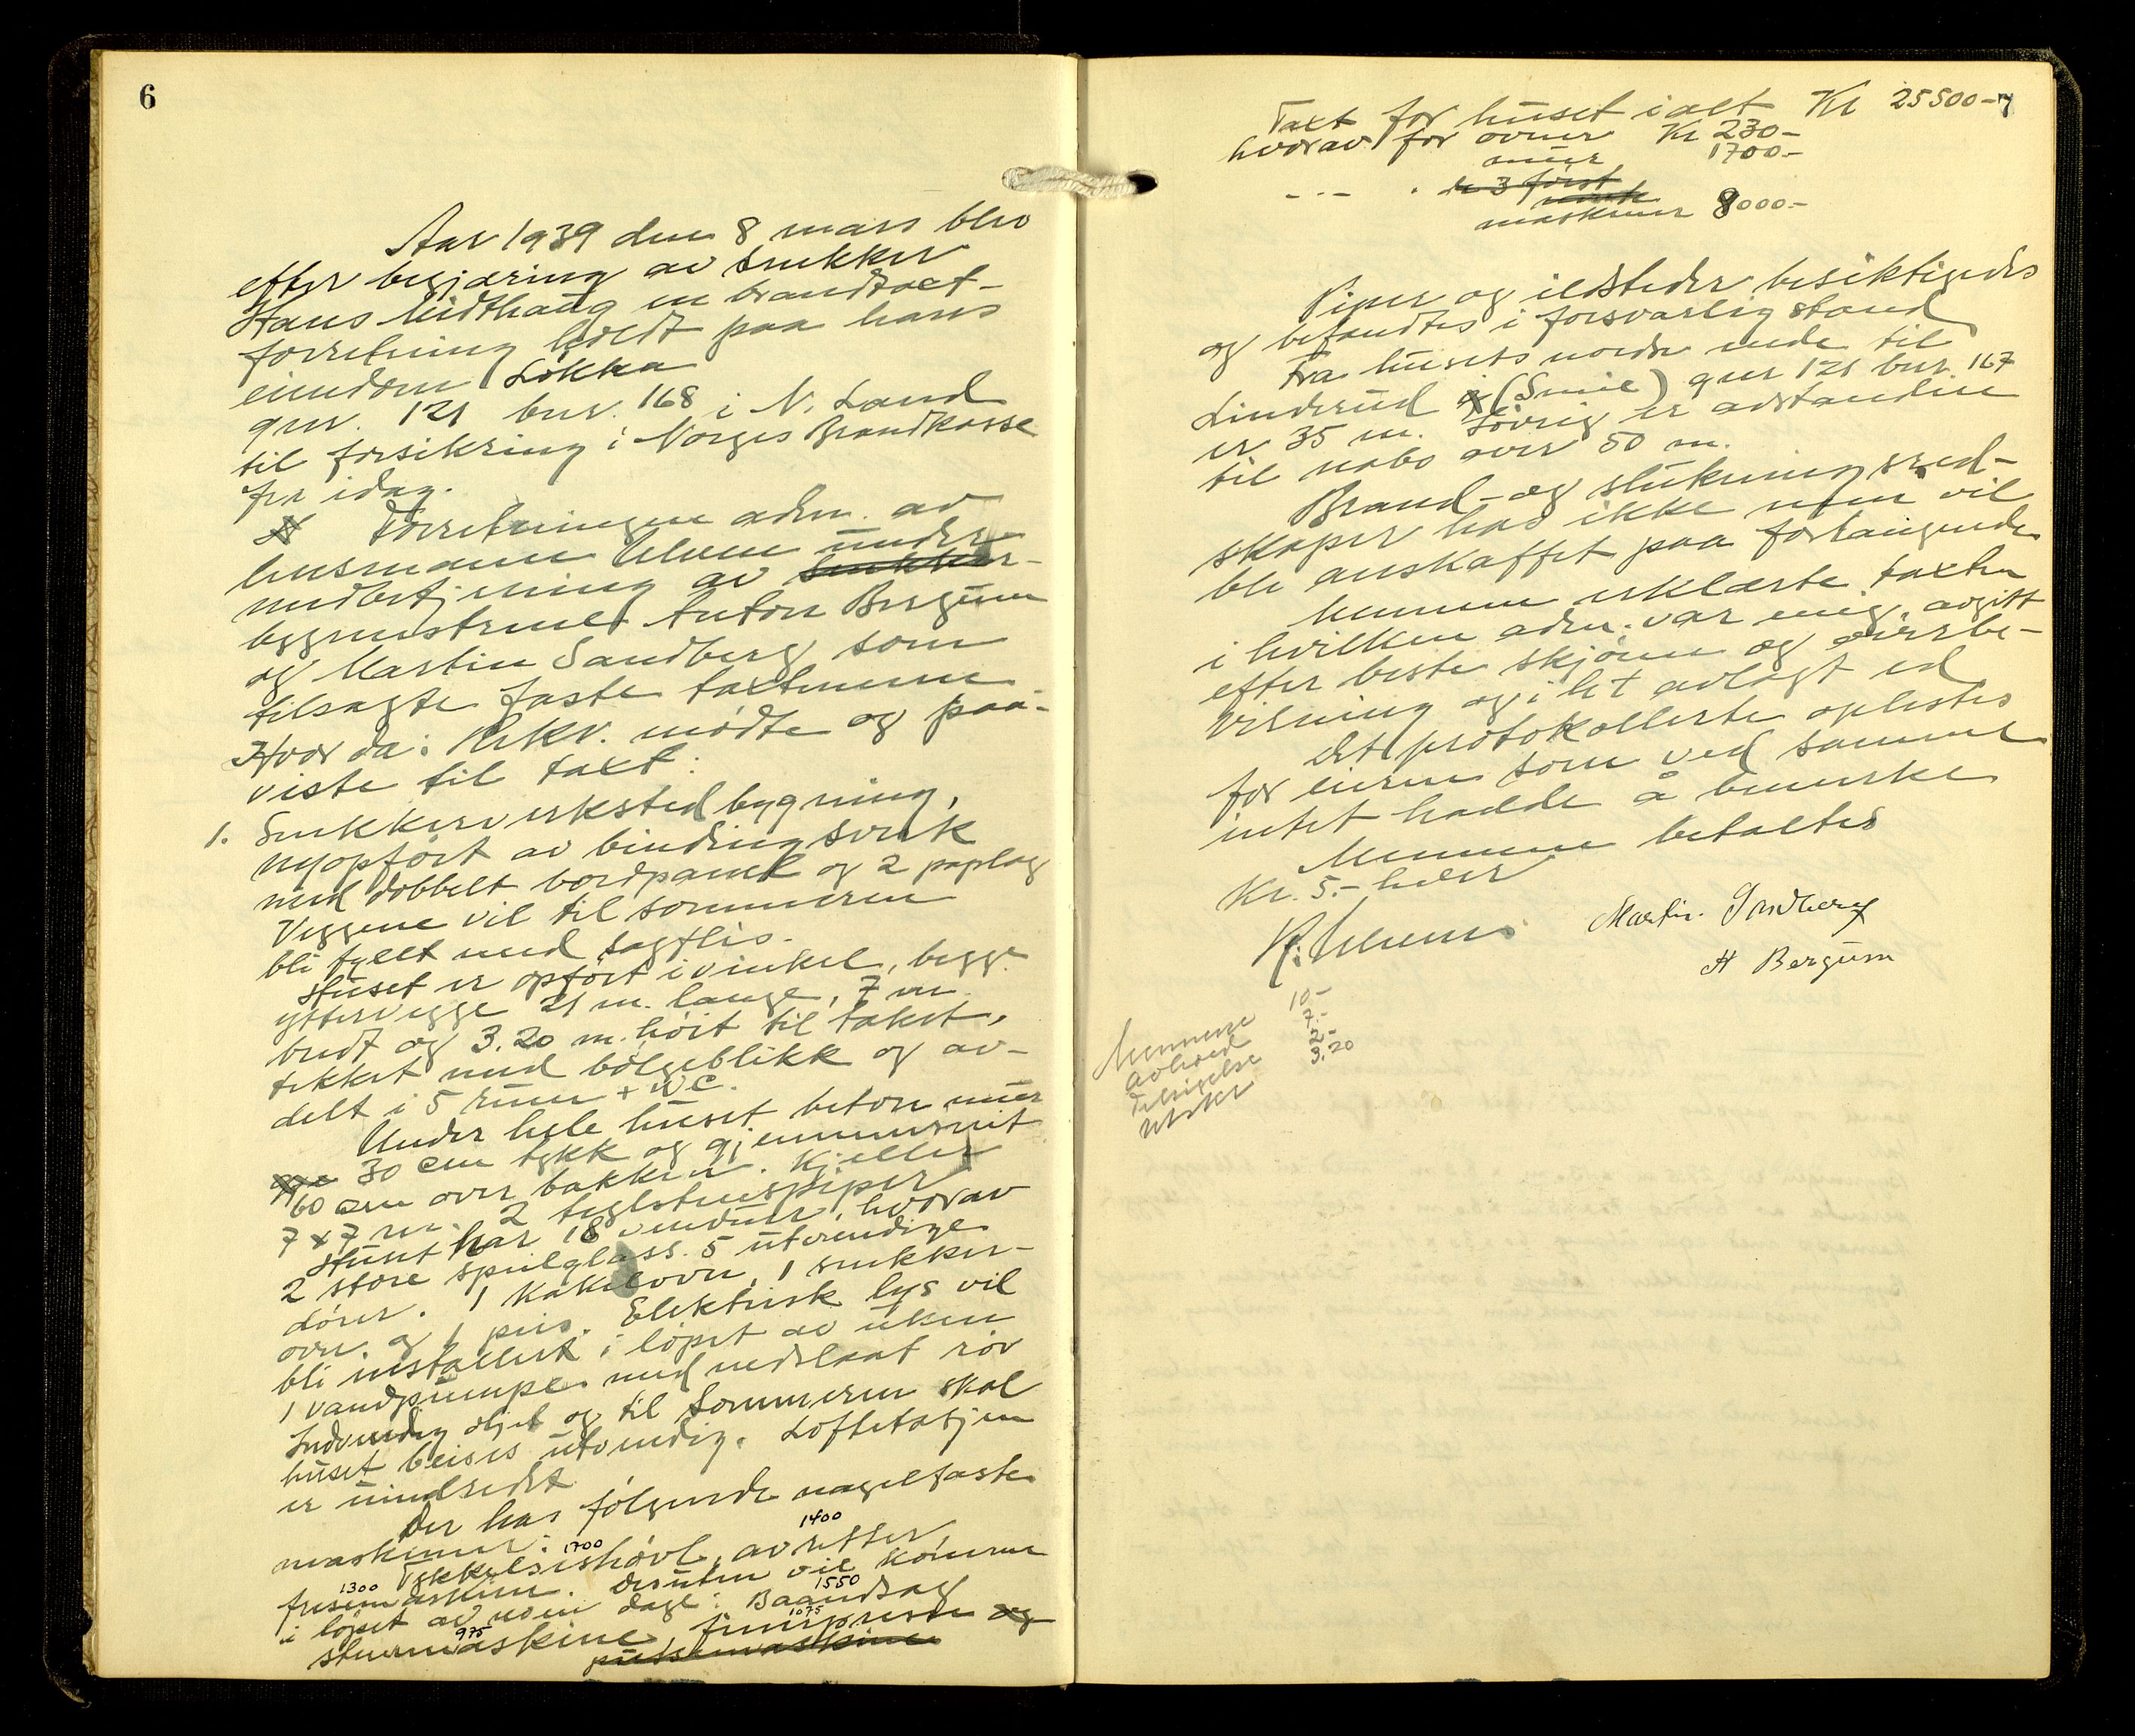 6
Aar 1939 den 8 mars blev
efter begjæring av snekker
Hans Midthaug en brandtaxt-
forretning holdt paa hans
eiendom Løkka
gnr. 121 bnr. 168 i N. Land
til forsikring i Norges Brandkasse
fra idag.
Forretningen adm. av
lensmann under
medbetjening av snekker-
byggmestrene Anton Bergum
og Martin Sandberg som
tilsagte faste taxtmenn
Hvor da: Rekv. mødte og paa-
viste til taxt:
1. Snekkerverkstedbygning,
nyopført av bindingsverk
med dobbelt bordpanel og 2 paplag
Veggene vil til sommeren
bli fyllt med sagflis.
Huset er opført i vinkel, begge
yttervegge 21 m. lange, 7 m.
bredt og 3.20 m. høit til taket,
tekket med bølgeblikk og av-
delt i 5 rum + WC.
Under hele huset beton mur
30 cm tykk og gjennemsnit
60 cm over bakken. Kjeller
7 x 7 m. 2 teglstenspiper
Huset har 18 vinduer, hvorav
2 store speilglass. 5 utvendige
dører. 1 kakelovn, 1 snekker-
ovn og 1 peis. Elektrisk lys vil
bli installert i løpet av uken
1 vandpumpe med nedslaat rør
Indvendig oljet og til Sommeren skal
huset beises utvendig. Loftetasjen
er uindredet
Der has følgende nagelfaste
maskiner: 1700 1400
Tykkelseshøvl, avretter,
1300
fresemaskin. Desuten vil komme
i løpet av noen dage: 1550 Baandsag
975 1075
stemmaskine, finerpresse og
pussemaskine
Taxt for huset i alt Kr 25500-
7
hvorav for ovner Kr 230-
mur 1700-
- - - . de 3 først
maskiner 8000-
Piper og ildsteder besiktigedes
og befandtes i forsvarlig stand
Fra husets nordre ende til
Linderud (Smie) gnr 121 bnr. 167
er 35 m. Forøvrig er avstanden
til nabo over 50 m.
Brand- og slukningsred-
skaper has ikke men vil
bli anskaffet paa forlangende
Mennene erklærte taxten
i hvilken adm. var enig, avgitt
efter beste skjønn og overbe-
visning og i het avlagt ed
Det protokollerte oplestes
for eieren som ved samme
intet hadde å bemerke
Mennene betaltes
Kr. 5.- hver
Martin Sandberg
A Bergum
Mennene 10.-
Avhold 7.-
Tilsigelse 2-
Utskr 3.20